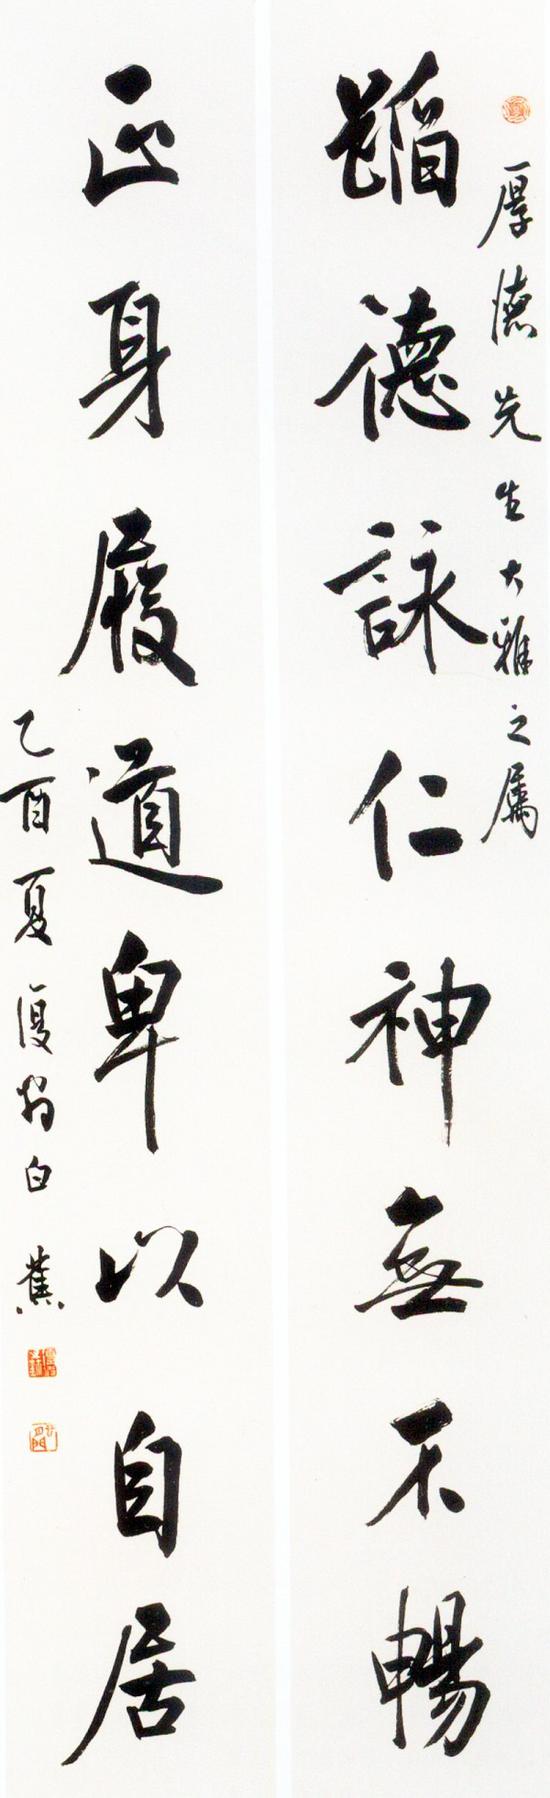 厚德先生大雅之属
蹈德詠仁神無不暢
正身履道卑以自居
乙酉夏復翁白蕉